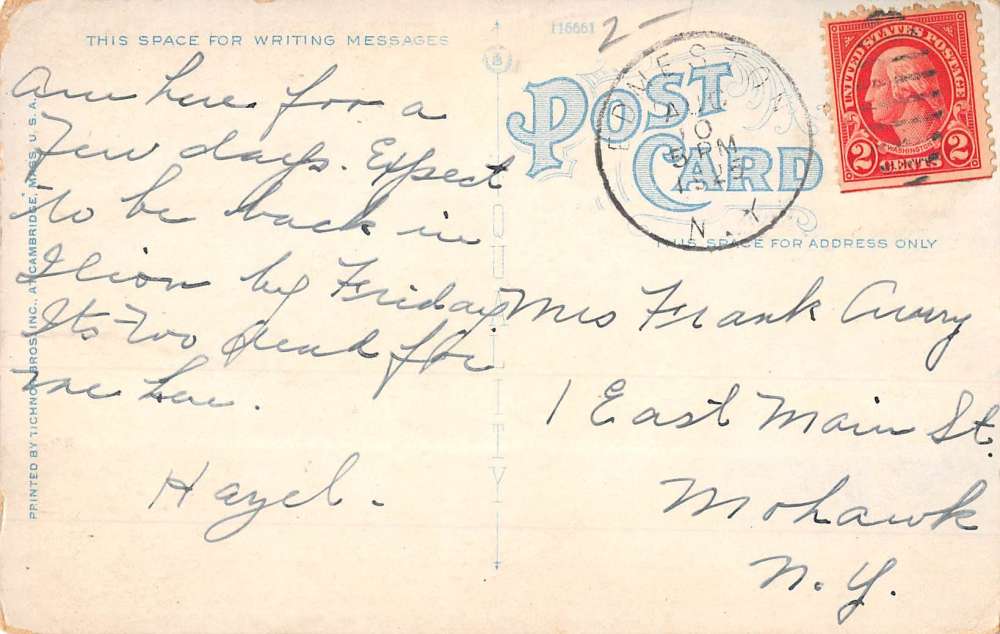 THIS SPACE FOR WRITING MESSAGES
Am here for a
Few days. Expect
to be back in
Ilion by Friday
Its too dead for
me here.
Hazel.
PRINTED BY TICHNOR BROS. INC., AT CAMBRIDGE, MASS. U.S.A.
QUALITY
116661
2-
POST
CARD
10
5 PM
1925
N.Y.
UNITED STATES POSTAGE
WASHINGTON
2 CENTS 2
THIS SPACE FOR ADDRESS ONLY
Mrs Frank
1 East Main St.
Mohawk
N.Y.